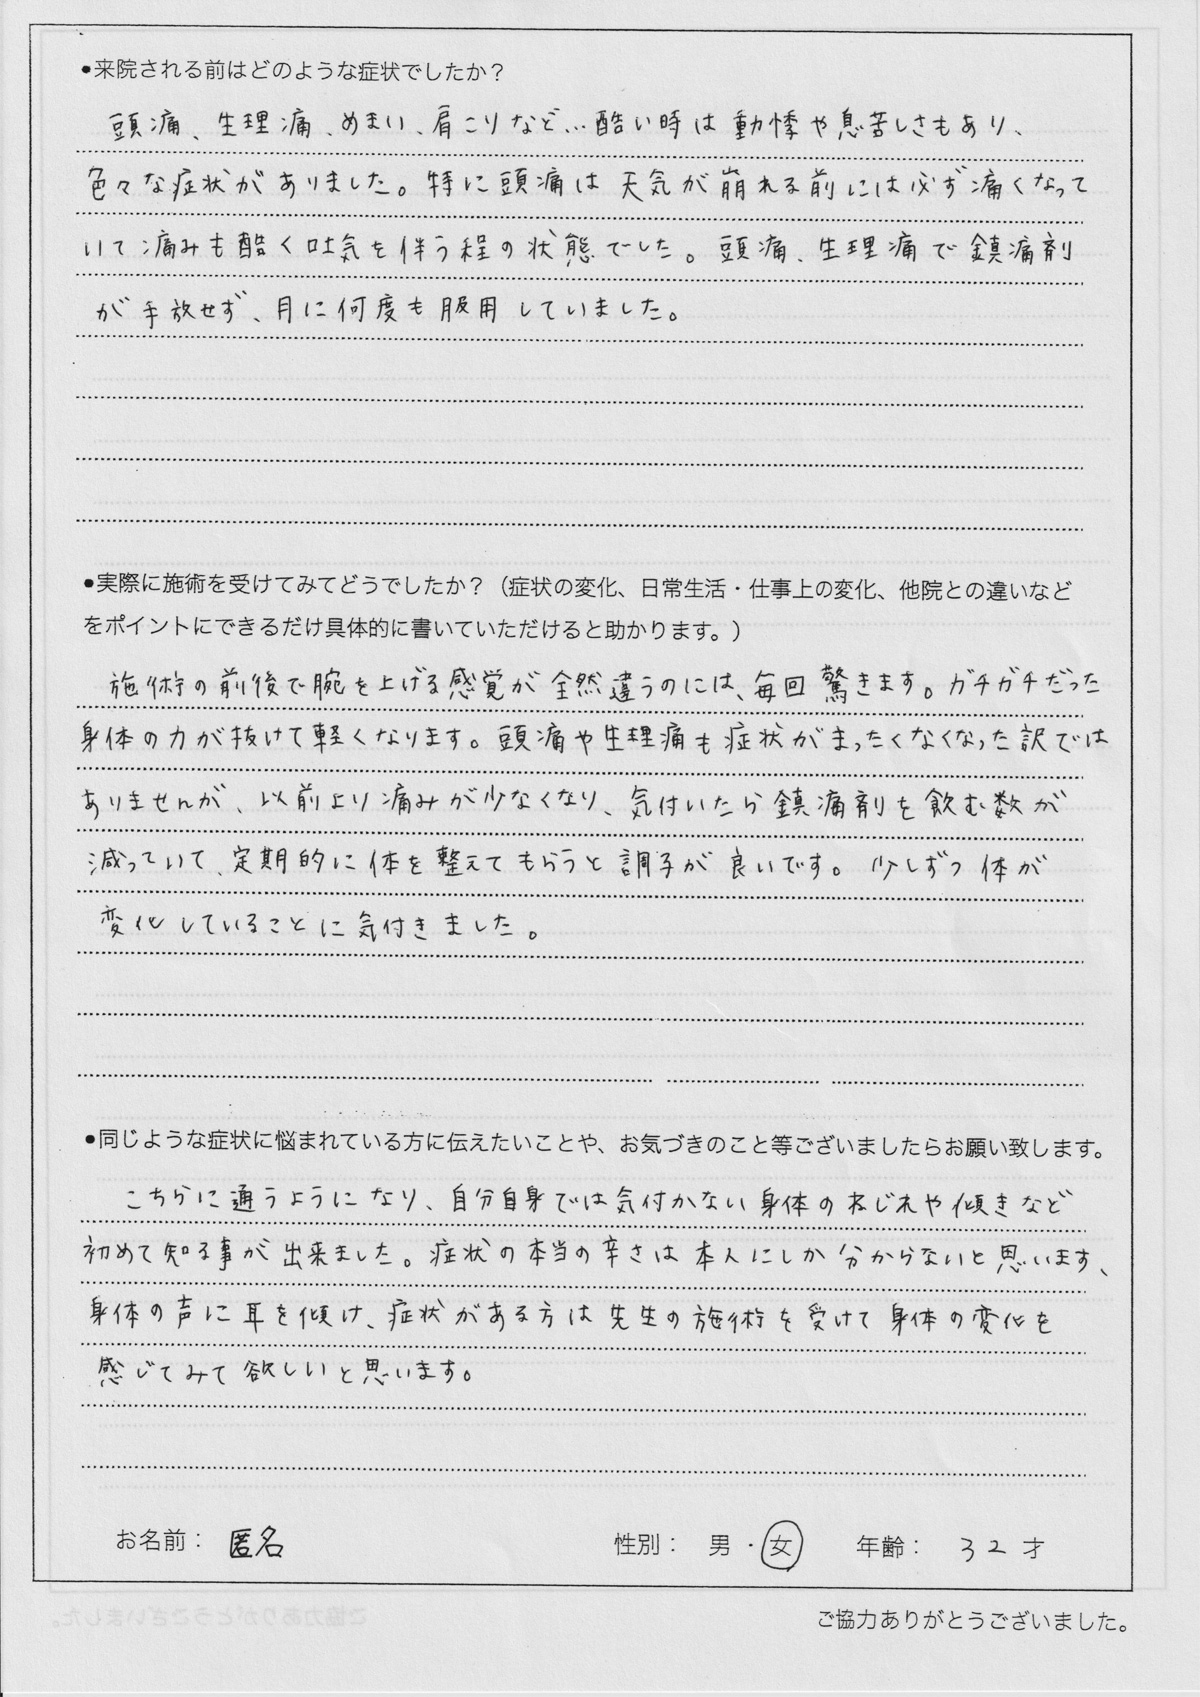 ●来院される前はどのような症状でしたか？
頭痛、生理痛、めまい、肩こりなど…酷い時は動悸や息苦しさもあり、
色々な症状がありました。特に頭痛は天気が崩れる前には必ず痛くなって
いて痛みも酷く吐気を伴う程の状態でした。頭痛、生理痛で鎮痛剤
が手放せず、月に何度も服用していました。
●実際に施術を受けてみてどうでしたか？（症状の変化、日常生活・仕事上の変化、他院との違いなど
をポイントにできるだけ具体的に書いていただけると助かります。）
施術の前後で腕を上げる感覚が全然違うのには、毎回驚きます。ガチガチだった
身体の力が抜けて軽くなります。頭痛や生理痛も症状がまったくなくなった訳では
ありませんが、以前より痛みが少なくなり、気付いたら鎮痛剤を飲む数が
減っていて、定期的に体を整えてもらうと調子が良いです。少しずつ体が
変化していることに気付きました。
●同じような症状に悩まれている方に伝えたいことや、お気づきのこと等ございましたらお願い致します。
こちらに通うようになり、自分自身では気付かない身体のねじれや傾きなど
初めて知る事が出来ました。症状の本当の辛さは本人にしか分からないと思います、
身体の声に耳を傾け、症状がある方は先生の施術を受けて身体の変化を
感じてみて欲しいと思います。
お名前： 匿名 性別： 男・女 年齢： 32才
ご協力ありがとうございました。